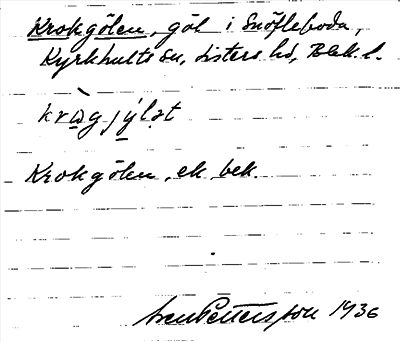 Krokgölen, göl i Snöfleboda,
Kyrkhults sn, Listers hd, Blek. l.
krɷ̀g jýlət
Krokgölen, ek. bek.
Sven Pettersson 1936